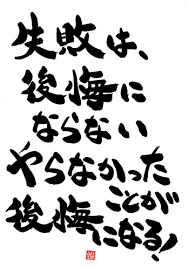 失敗は、
後悔に
ならない
やらなかった
ことが
後悔になる！